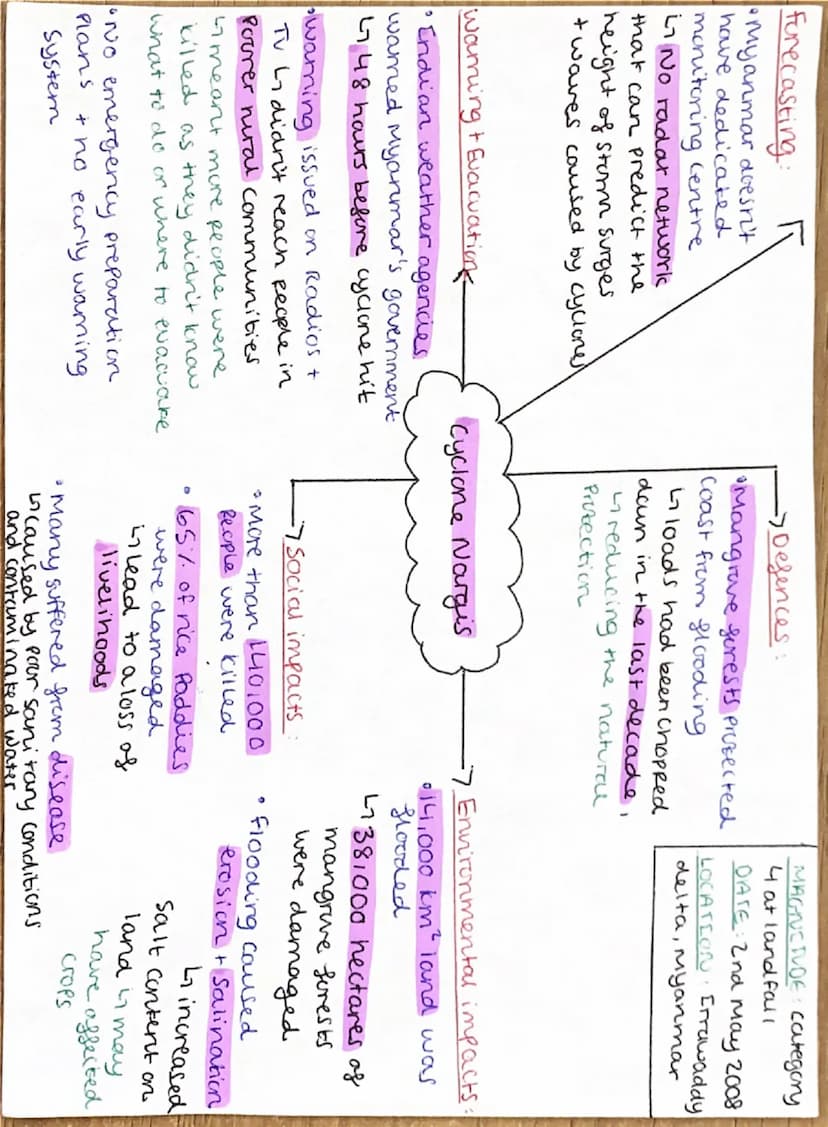 Forecasting:
• Myanmar doesn't
have dedicated
monitoring centre
↳ No radar network
that can predict the
height of storm surges
+ waves caused by cyclones
Defences:
• Mangrove forests protected
coast from flooding
↳ loads had been chopped
down in the last decade,
↳ reducing the natural
protection
MAGNITUDE: category
4 at landfall
DATE: 2nd May 2008
LOCATION: Irrawaddy
delta, Myanmar
Cyclone Nargis
Warning + Evacuation
• Indian weather agencies
warned Myanmar's government
↳ 48 hours before cyclone hit
• Warning issued on Radios +
TV ↳ didn't reach people in
poorer rural communities
↳ meant more people were
killed as they didn't know
what to do or where to evacuate
• No emergency preparation
plans + no early warning
system
Social impacts:
• More than 140,000
people were killed
• 65% of rice paddies
were damaged
↳ lead to a loss of
livelihoods
• Many suffered from disease
↳ caused by poor sanitary conditions
and contaminated water
Environmental impacts:
• 14,000 km² land was
flooded
↳ 38,000 hectares of
mangrove forests
were damaged
• Flooding caused
erosion + salination
↳ increased
salt content on
land ↳ may
have affected
crops